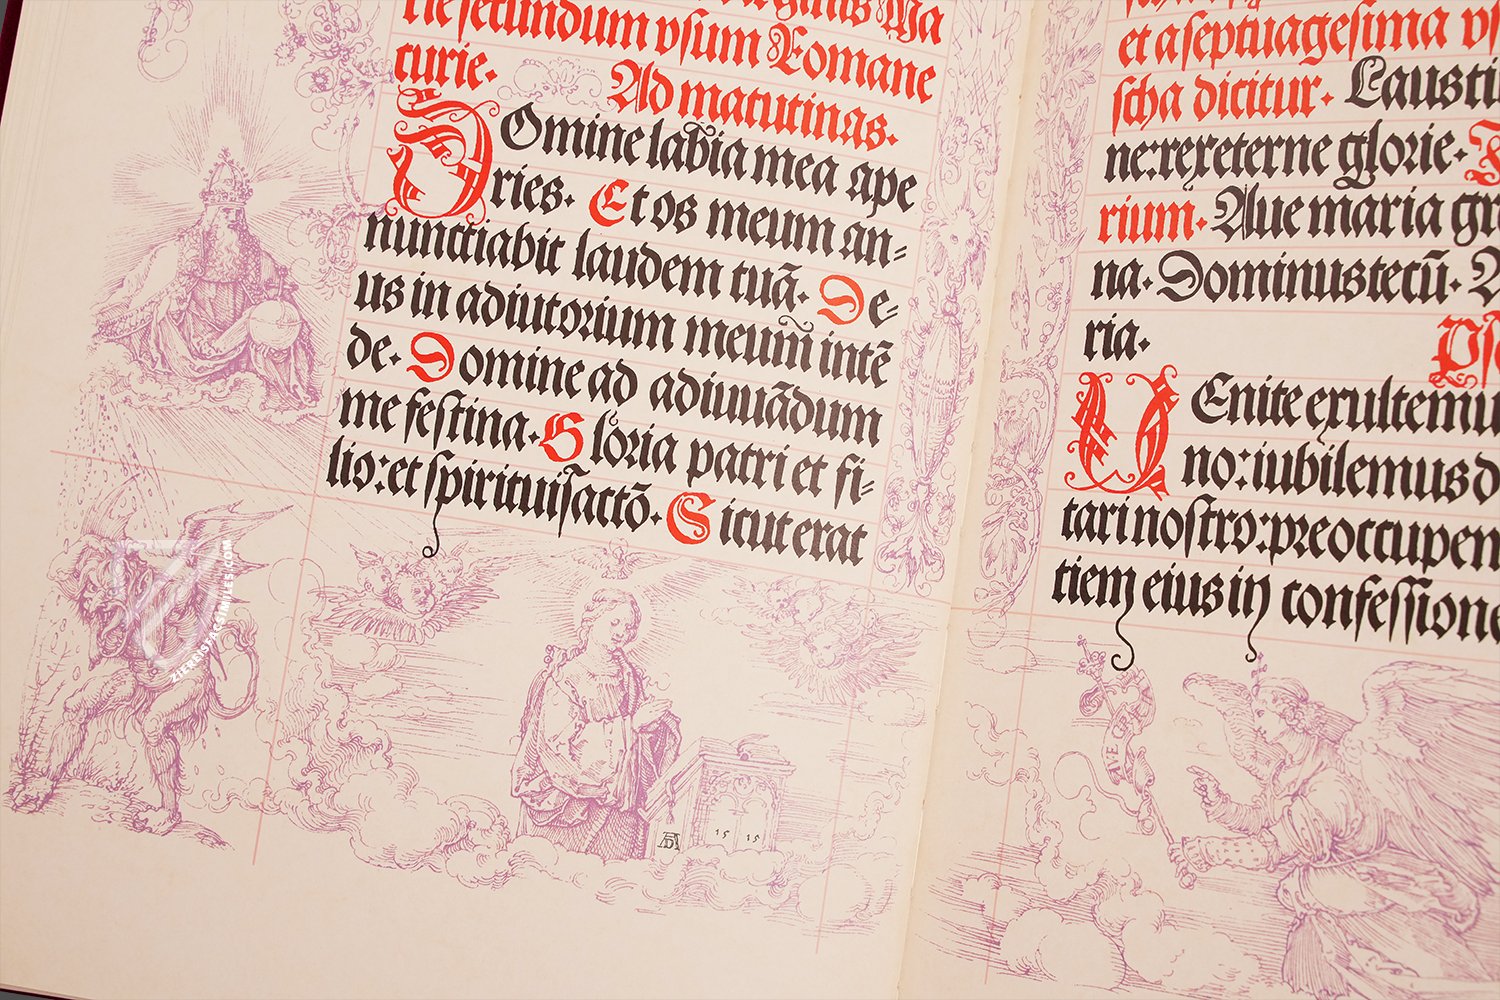 rie secundum vsum Romane
curie. Ad matutinas.
Domine labia mea ape
ries. Et os meum an-
nunctiabit laudem tuā. De-
us in adiutorium meum intē
de. Domine ad adiuuādum
me festina. Gloria patri et fi-
lio: et spirituisactō. Sicut erat
AD
1515
et a septuagesima vs
scha dicitur. Laus ti
ne: rex eterne glorie.
rium. Aue maria gr
na. Dominus tecū.
ria. Ps
Uenite exultemu
no: iubilemus d
tari nostro: preoccupen
tiem eius in confessione
AVE GR
ZIEREISFACSIMILES.COM